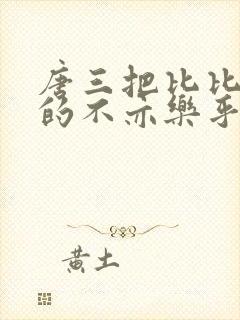 唐三把比比
的不亦樂乎
黃土